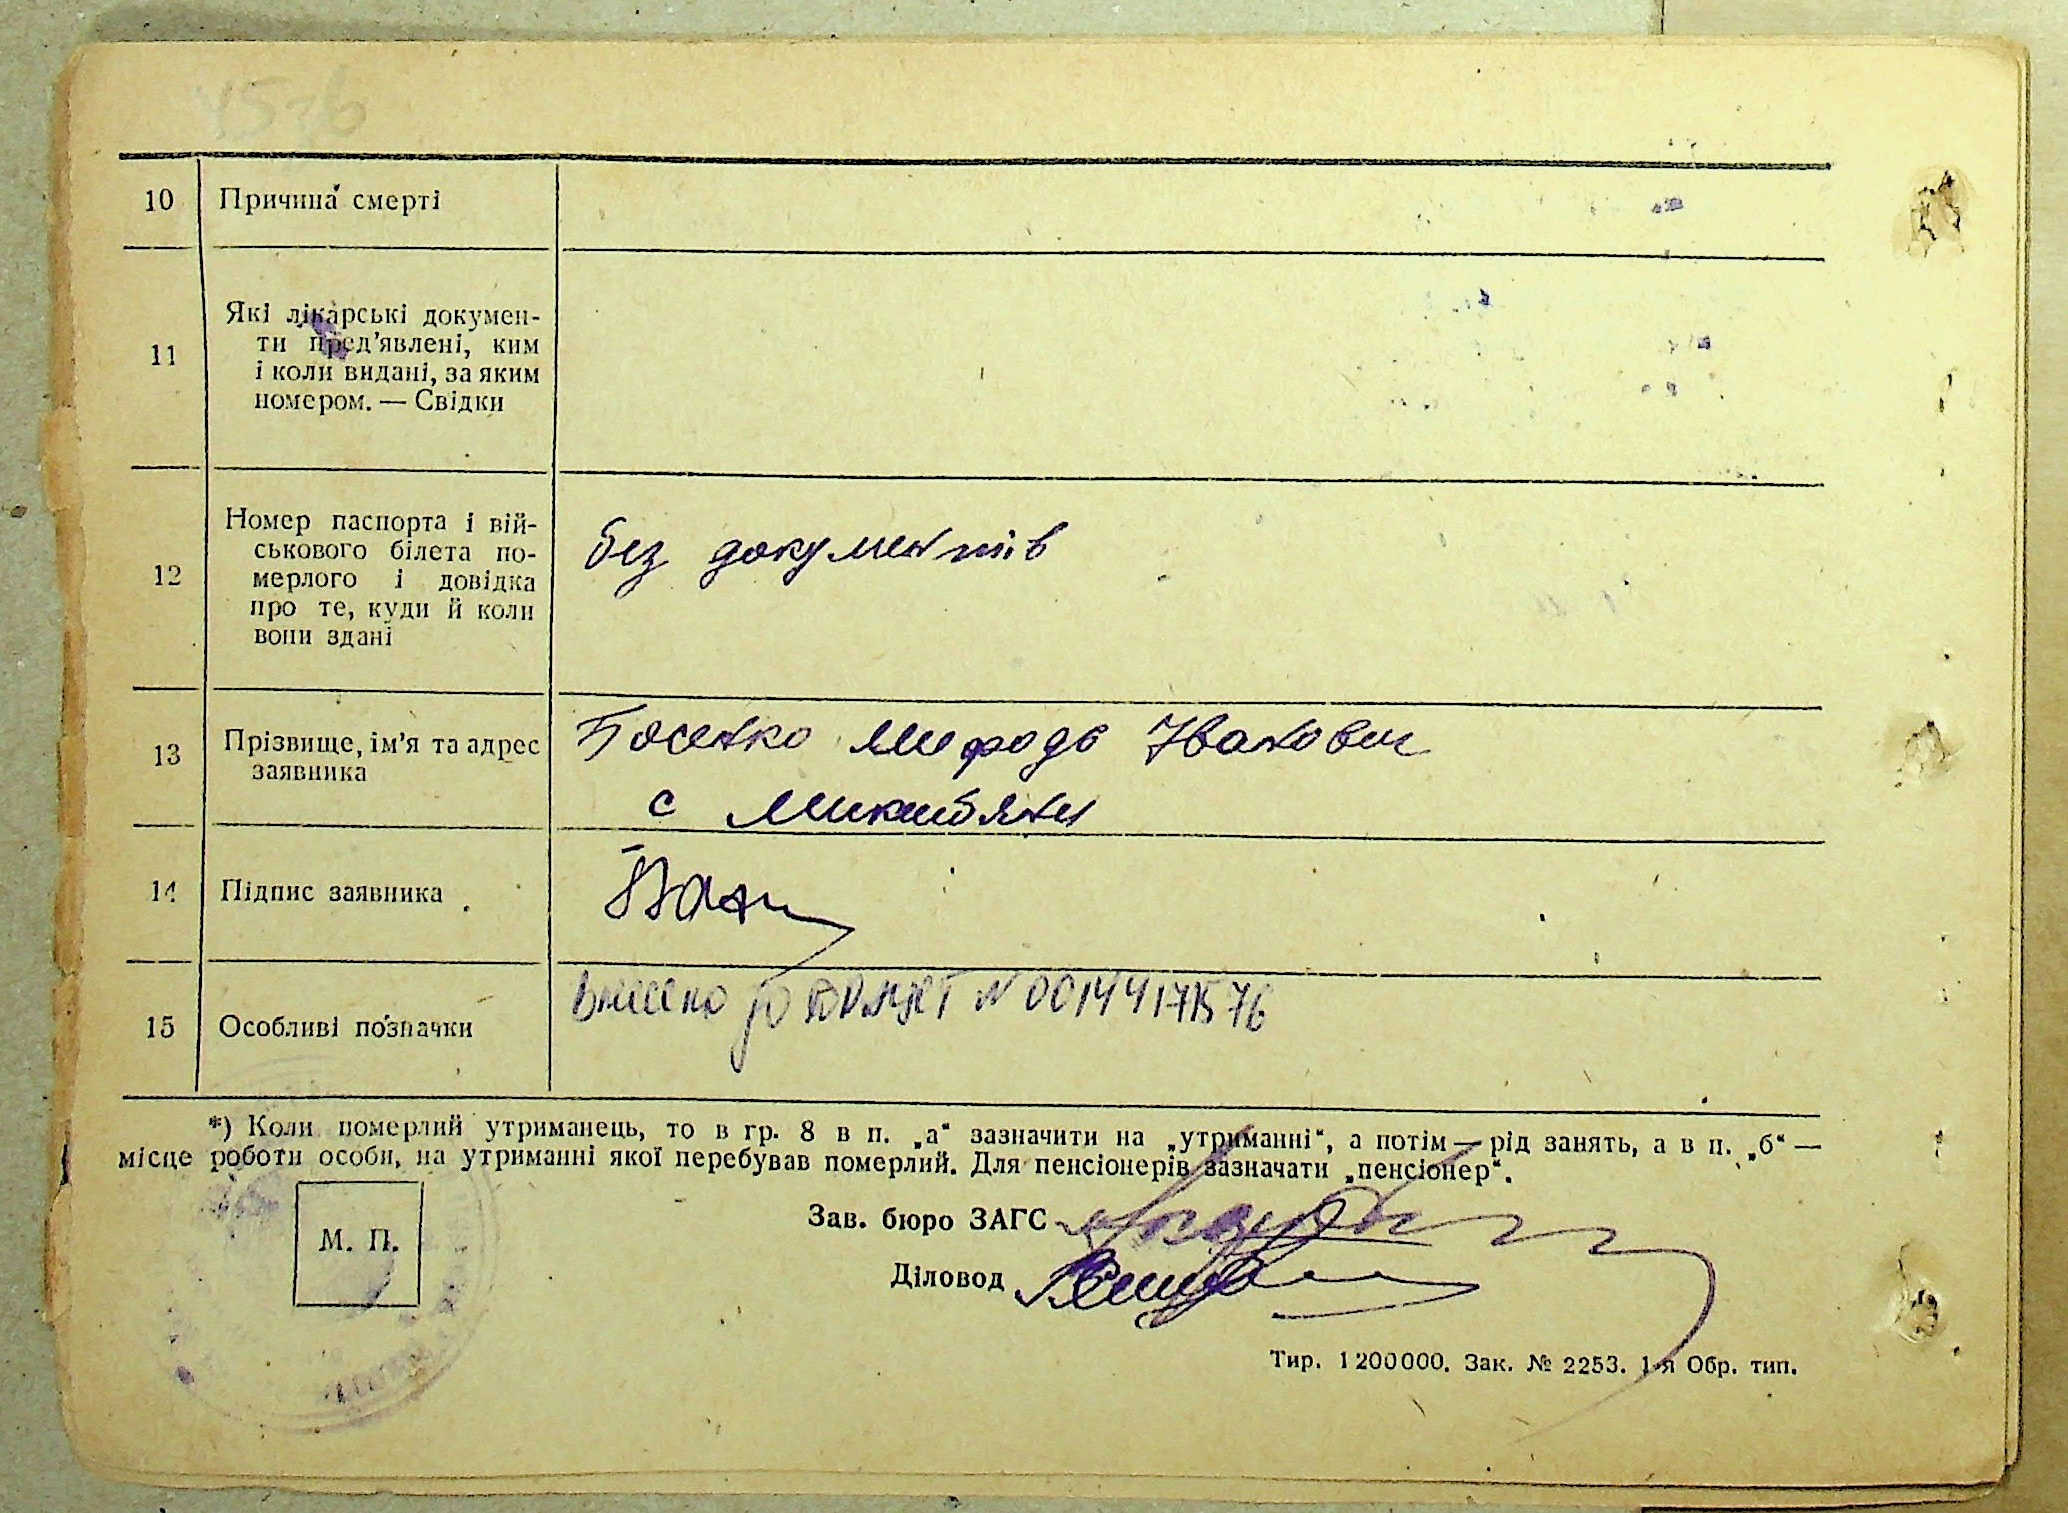 10 Причина смерті
11 Які лікарські докумен-
ти пред'явлені, ким
і коли видані, за яким
номером. — Свідки
12 Номер паспорта і вій-
ськового білета по-
мерлого і довідка
про те, куди й коли
вони здані
без документів
13 Прізвище, ім'я та адрес
заявника
Іванович
с
14 Підпис заявника
15 Особливі позначки
Внесено до N 00144171576
*) Коли померлий утриманець, то в гр. 8 в п. „а“ зазначити на „утриманні“, а потім — рід занять, а в п. „б“ —
місце роботи особи, на утриманні якої перебував померлий. Для пенсіонерів зазначати „пенсіонер“.
М. П.
Зав. бюро ЗАГС
Діловод
Тир. 1200000. Зак. № 2253. 1-я Обр. тип.